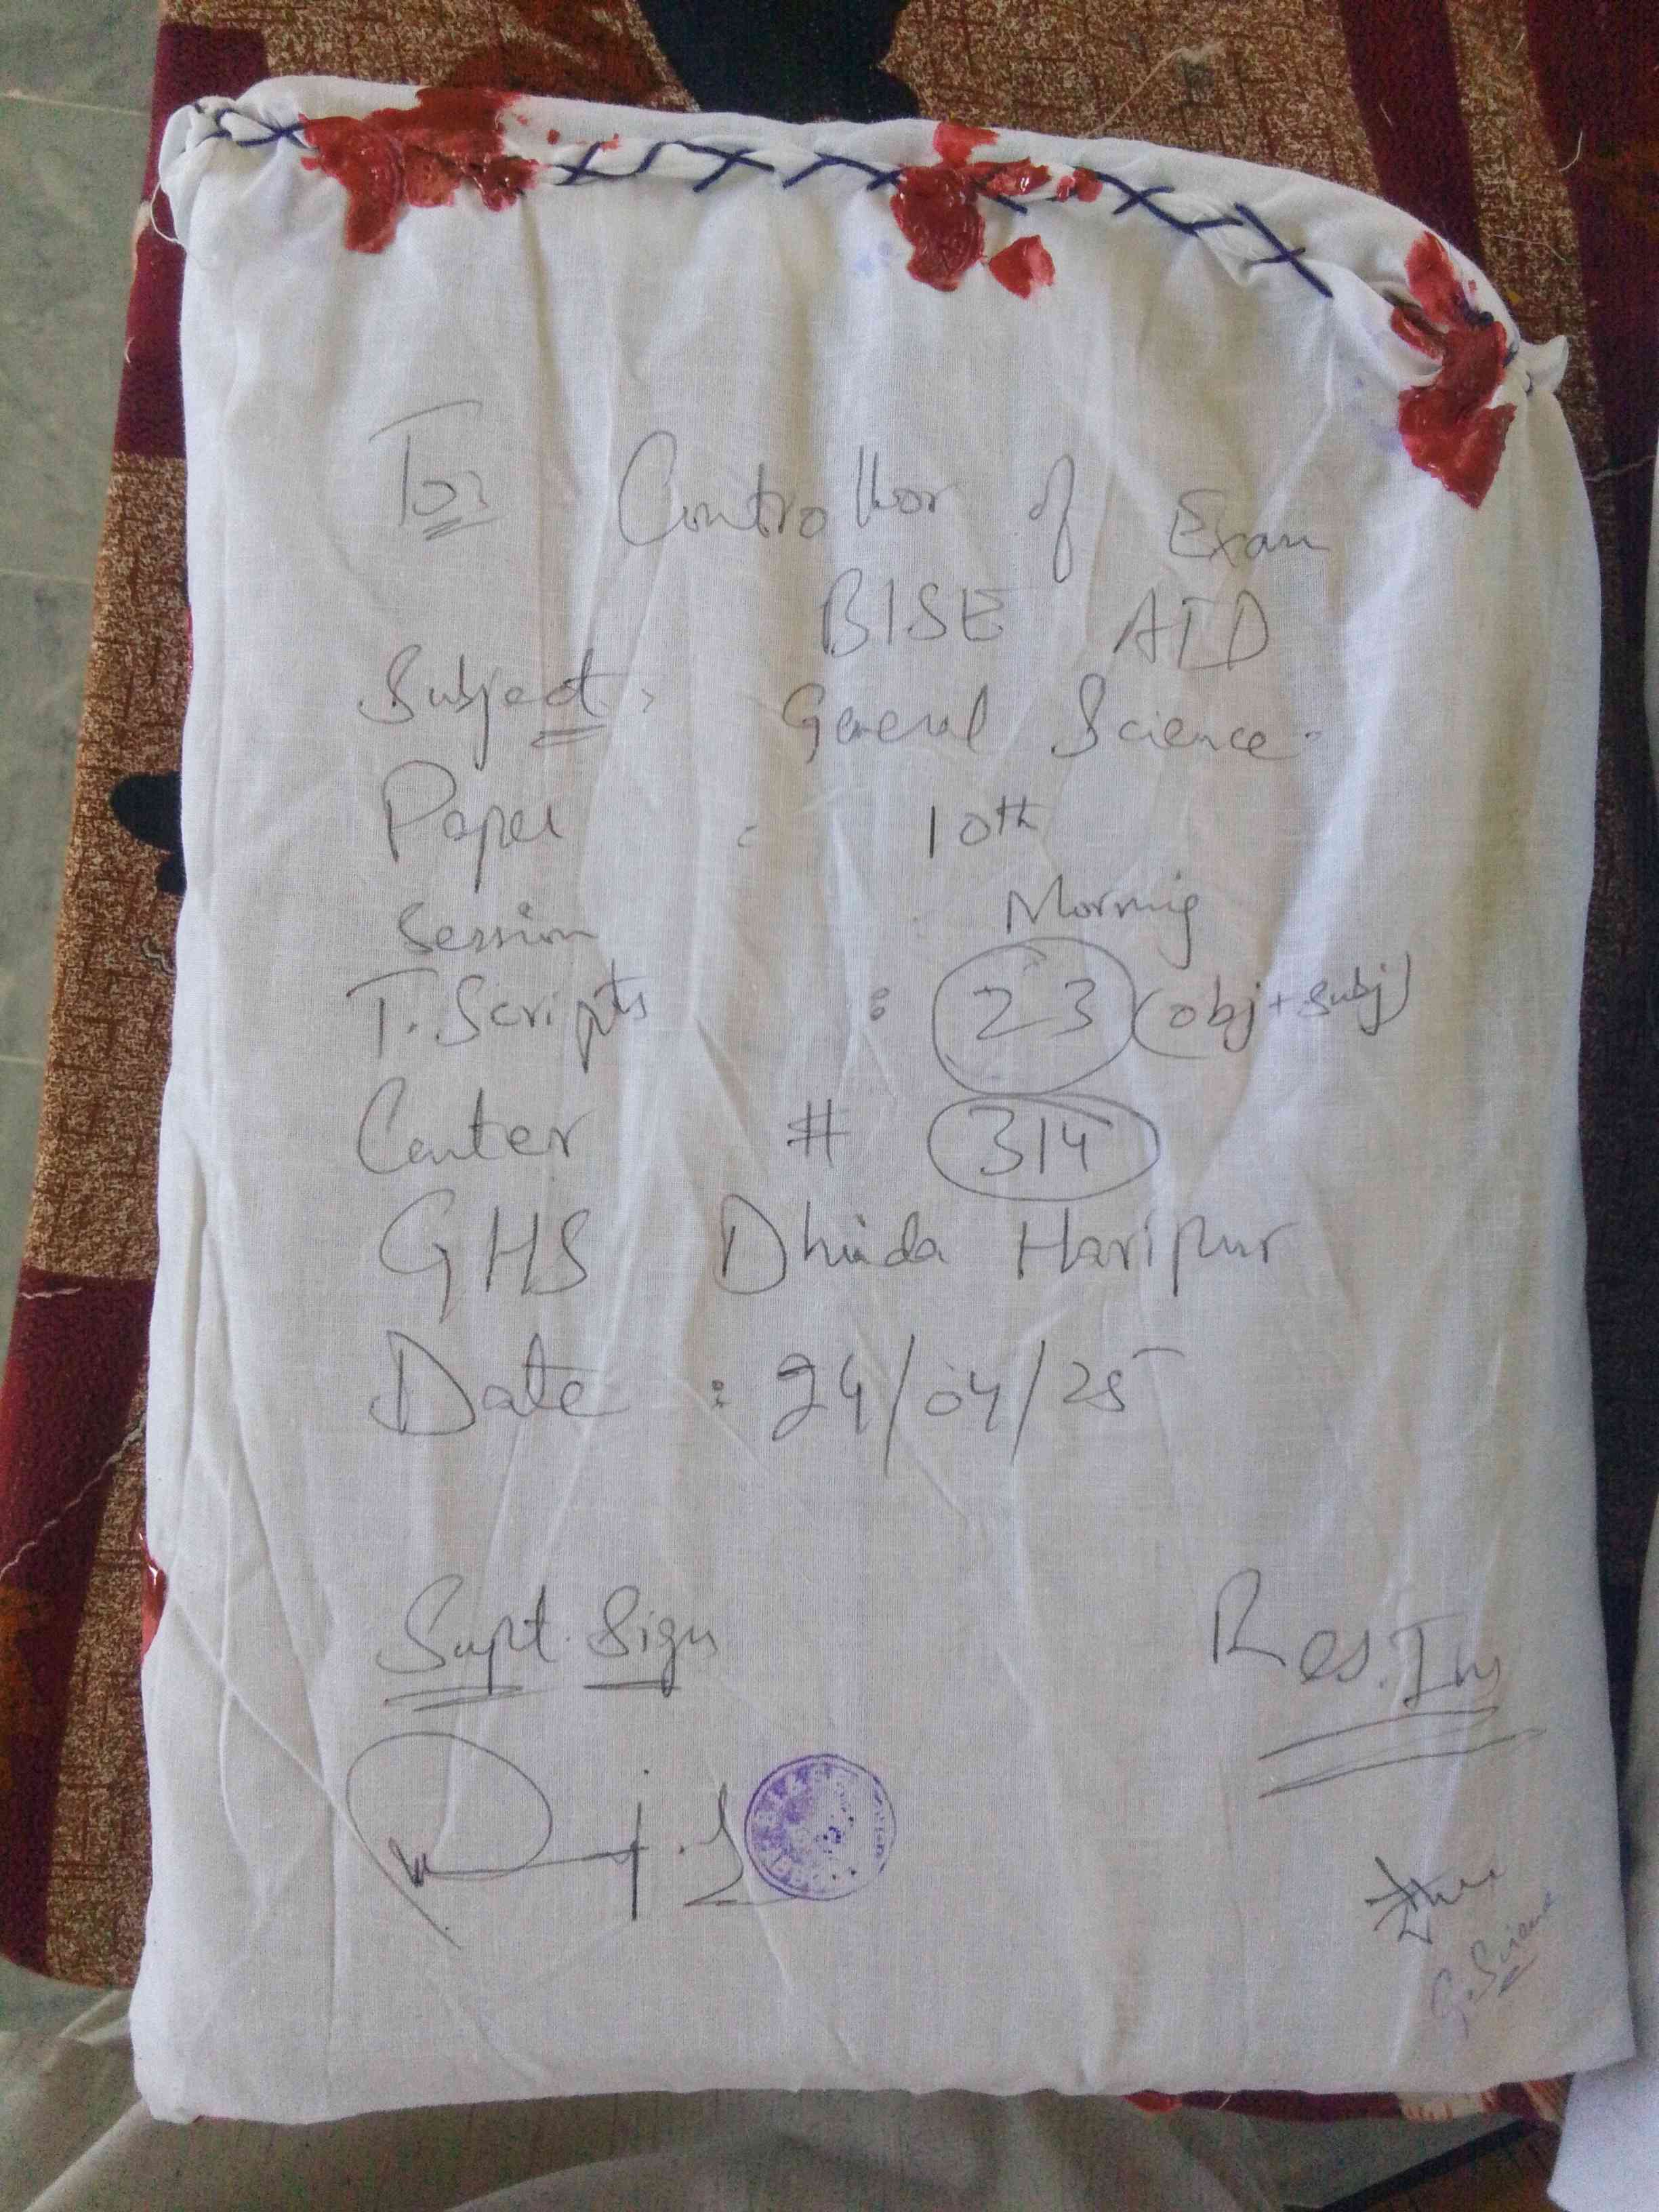 To:
Controllor of Exam
BISE ATD
Subject: General Science.
Paper : 10th
Session : Morning
T. Scripts : 23 (obj + subj)
Center # 314
GHS Dhinda Haripur
Date : 24/04/25
Supt. Sign
Res. Ins
G. Science